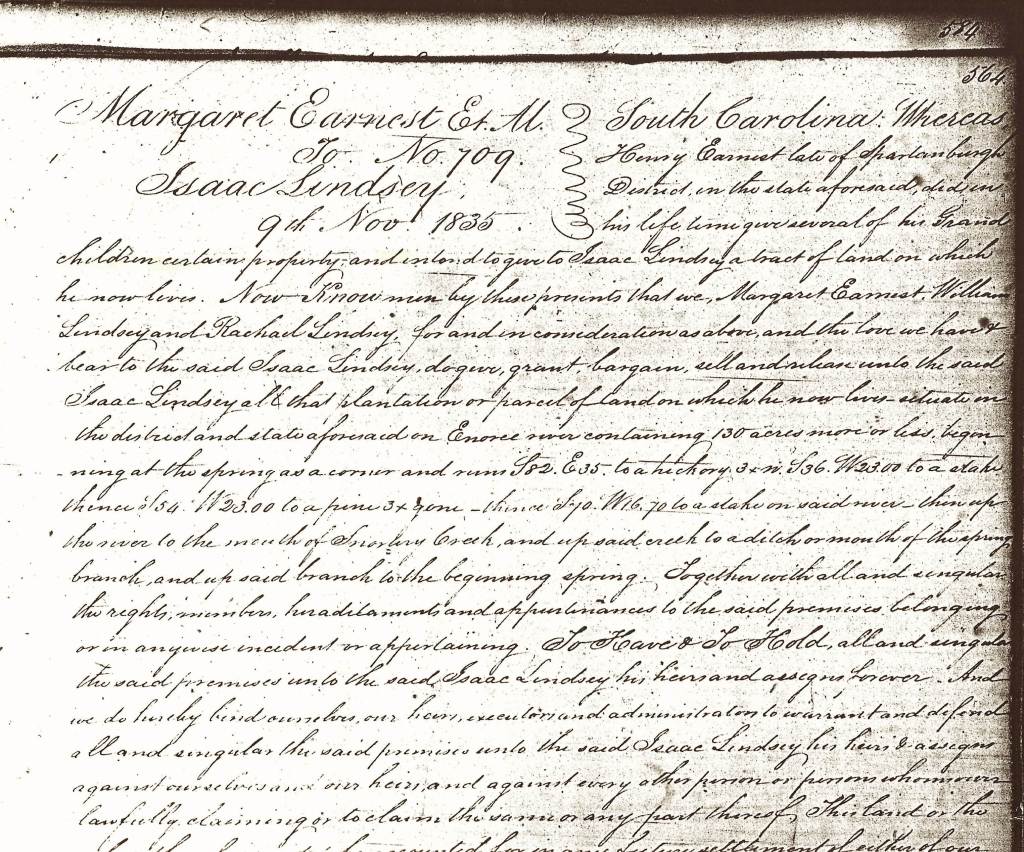 584
564
Margaret Earnest Et. Al.
To. No. 709.
Isaac Lindsey
9th Nov. 1835.
South Carolina. Whereas,
Henry Earnest late of Spartanburgh
District, in the state aforesaid, did in
his life time give several of his Grand
children certain property, and intend to give to Isaac Lindsey a tract of land on which
he now lives. Now Know men by these presents that we, Margaret Earnest, William
Lindsey and Rachael Lindsey, for and in consideration as above, and the love we have &
bear to the said Isaac Lindsey, do give, grant, bargain, sell and release unto the said
Isaac Lindsey all that plantation or parcel of land on which he now lives situate in
the district and state aforesaid on Enoree river containing 130 acres more or less, begin
-ning at the spring as a corner and runs S82. E35. to a hickory 3x n. S36. W23.00 to a stake,
thence S54. W23.00 to a pine 3x gone - thence S70. W16.70 to a stake on said river - then up
the river to the mouth of Creek, and up said creek to a ditch or mouth of the spring
branch, and up said branch to the beginning spring. Together with all and singular
the rights, members, heraditaments and appurtinances to the said premises belonging
or in anywise incedent or appertaining. To Have & To Hold, all and singular
the said premises unto the said Isaac Lindsey his heirs and assegns forever. And
we do hereby bind ourselves, our heirs, executors and administrators to warrant and defend
all and singular the said premises unto the said Isaac Lindsey his heirs & assegns
against ourselves and our heirs, and against every other person or persons whomsoever
lawfully claiming or to claim the same or any part thereof. This land or the
accounted for in any future settlement of either of our